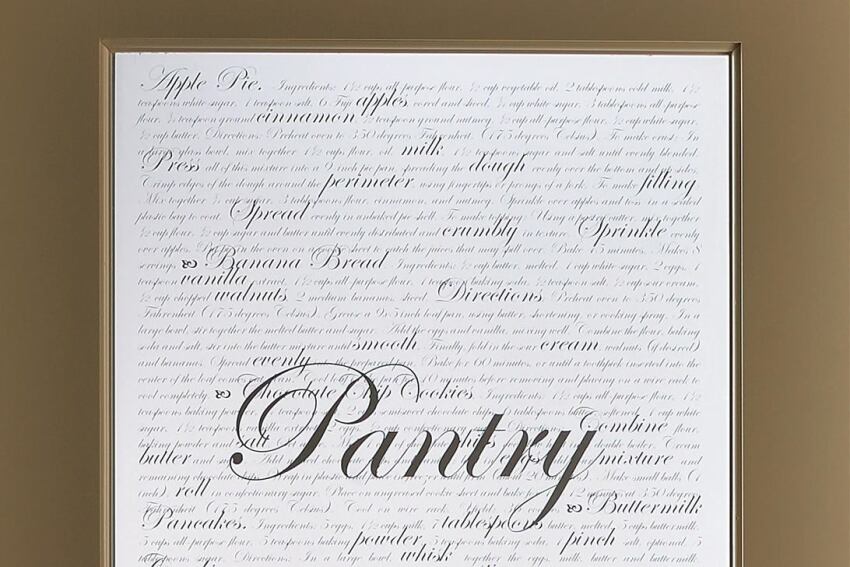 Apple Pie. Ingredients: 1½ cups all purpose flour, ½ cup vegetable oil, 2 tablespoons cold milk, 1½
teaspoons white sugar, 1 teaspoon salt, 6 Fuji apples cored and sliced, ¾ cup white sugar, 3 tablespoons all purpose
flour, ¾ teaspoon ground cinnamon ½ teaspoon ground nutmeg, ½ cup all purpose flour, ½ cup white sugar,
½ cup butter. Directions: Preheat oven to 350 degrees Fahrenheit. (175 degrees Celsius). To make crust: In
a large glass bowl, mix together 1½ cups flour, oil, milk, 1½ teaspoons sugar and salt until evenly blended.
Press all of this mixture into a 9 inch pie pan, spreading the dough evenly over the bottom and sides.
Crimp edges of the dough around the perimeter using fingertips or prongs of a fork. To make filling
Mix together ¾ cup sugar, 3 tablespoons flour, cinnamon, and nutmeg. Sprinkle over apples and toss in a sealed
plastic bag to coat. Spread evenly in unbaked pie shell. To make topping: Using a pastry cutter, mix together
½ cup flour, ½ cup sugar and butter until evenly distributed and crumbly in texture. Sprinkle evenly
over apples. Put pie in the oven on a cookie sheet to catch the juices that may spill over. Bake 45 minutes. Makes 8
servings. Banana Bread Ingredients: ½ cup butter, melted, 1 cup white sugar, 2 eggs, 1
teaspoon vanilla extract, 1½ cups all purpose flour, 1 teaspoon baking soda, ½ teaspoon salt, ½ cup sour cream,
½ cup chopped walnuts, 2 medium bananas, sliced. Directions: Preheat oven to 350 degrees
Fahrenheit (175 degrees Celsius). Grease a 9x5 inch loaf pan, using butter, shortening, or cooking spray. In a
large bowl, stir together the melted butter and sugar. Add the eggs and vanilla, mixing well. Combine the flour, baking
soda and salt, stir into the butter mixture until smooth. Finally, fold in the sour cream, walnuts (if desired)
and bananas. Spread evenly the prepared pan. Bake for 60 minutes, or until a toothpick inserted into the
center of the loaf comes out clean. Cool loaf in pan for 10 minutes before removing and placing on a wire rack to
cool completely. Chocolate Chip Cookies. Ingredients: 1½ cups all purpose flour,
teaspoons baking semisweet chocolate chips, tablespoons butter, softened, 1 cup white
sugar, 1½ teaspoons vanilla extract, eggs, Combine flour,
baking powder and salt of chocolate chips double boiler. Cream
butter and mixture and
remaining Make small balls (1
inch), roll in confectionery sugar. Place on ungreased cookie sheet and bake for 12 minutes at 350 degrees
Fahrenheit (175 degrees Celsius). Cool on wire rack. Buttermilk
Pantry
Pancakes. Ingredients: 3 eggs, 1½ cups milk, 7 tablespoons butter, melted, 3 cups buttermilk,
3 cups all purpose flour, 3 teaspoons baking powder, teaspoons baking soda, 1 pinch salt, optional, 3
tablespoons sugar. Directions: In a large bowl, whisk together the eggs, milk, butter and buttermilk.